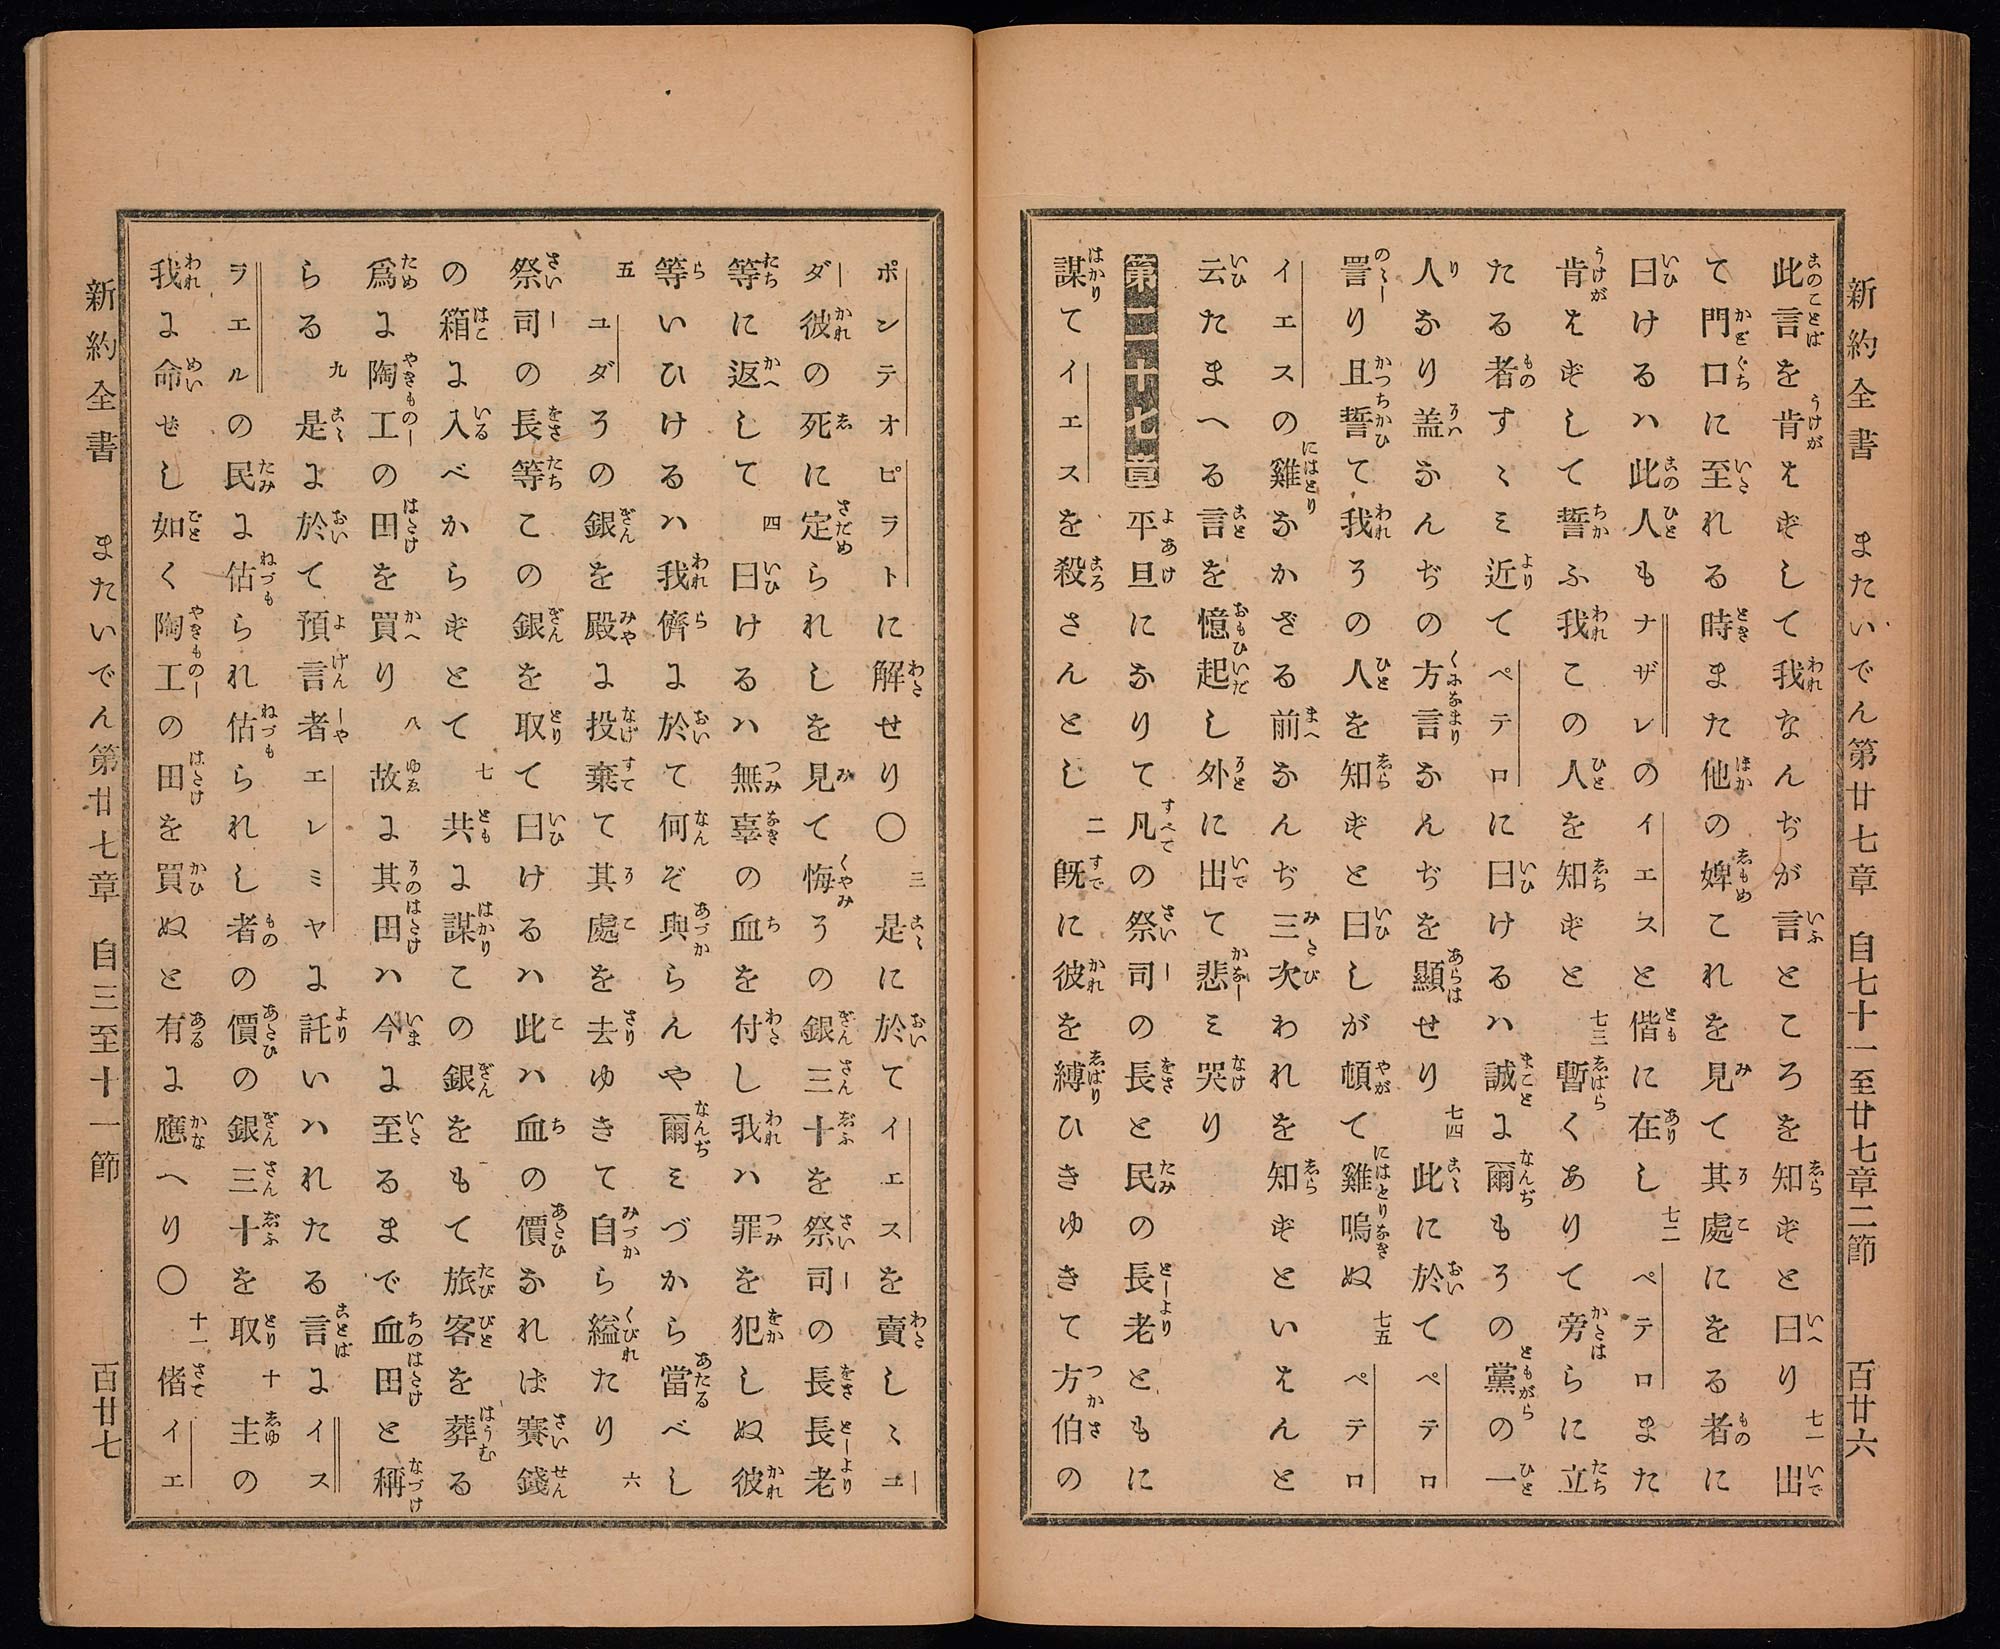 新約全書 またいでん第廿七章 自七十一至廿七章二節 百廿六
此言を肯はずして我なんぢが言ところを知ずと曰り 七一 出
て門口に至れる時また他の婢これを見て其處にをる者に
曰けるハ此人もナザレのイエスと偕に在し 七二 ペテロまた
肯はずして誓ふ我この人を知ずと 七三 暫くありて旁らに立
たる者すゝミ近てペテロに曰けるハ誠に爾もその黨の一
人なり盖なんぢの方言なんぢを顯せり 七四 此に於てペテロ
詈り且誓て我その人を知ずと曰しが頓て雞鳴ぬ 七五 ペテロ
イエスの雞なかざる前なんぢ三次われを知ずといはんと
云たまへる言を憶起し外に出て悲ミ哭り
第二十七章 平旦になりて凡の祭司の長と民の長老ともに
謀てイエスを殺さんとし 二 旣に彼を縛ひきゆきて方伯の
ポンテオピラトに解せり〇 三 是に於てイエスを賣しゝユ
ダ彼の死に定られしを見て悔その銀三十を祭司の長長老
等に返して 四 曰けるハ無辜の血を付し我ハ罪を犯しぬ彼
等いひけるハ我儕に於て何ぞ與らんや爾ミづから當べし
五 ユダその銀を殿に投棄て其處を去ゆきて自ら縊たり 六
祭司の長等この銀を取て曰けるハ此ハ血の價なれば賽錢
の箱に入べからずとて 七 共に謀この銀をもて旅客を葬る
爲に陶工の田を買り 八 故に其田ハ今に至るまで血田と稱
らる 九 是に於て預言者エレミヤに託いハれたる言にイス
ラエルの民に估られ估られし者の價の銀三十を取 十 主の
我に命せし如く陶工の田を買ぬと有に應へり〇 十一 偖イエ
新約全書 またいでん第廿七章 自三至十一節 百廿七